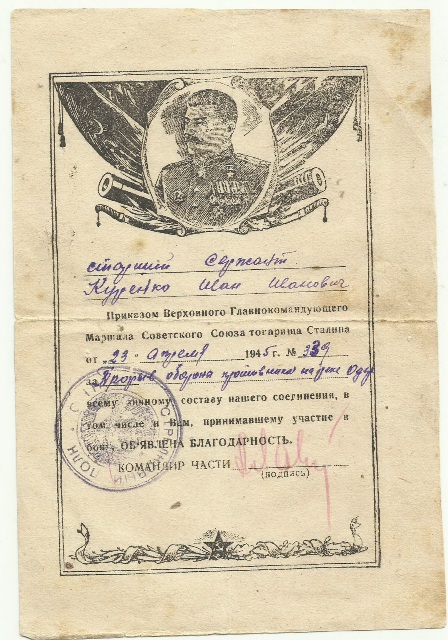 старший Сержант
Куренко Иван Иванович
Приказом Верховного Главнокомандующего
Маршала Советского Союза товарища Сталина
от „23" апреля 1945 г. № 339
за Прорыв оборона противника на реке Одер
всему личному составу нашего соединения, в
том числе и Вам, принимавшему участие в
боях, ОБ'ЯВЛЕНА БЛАГОДАРНОСТЬ.
КОМАНДИР ЧАСТИ
(подпись)
СТРЕЛКОВЫЙ ПОЛК